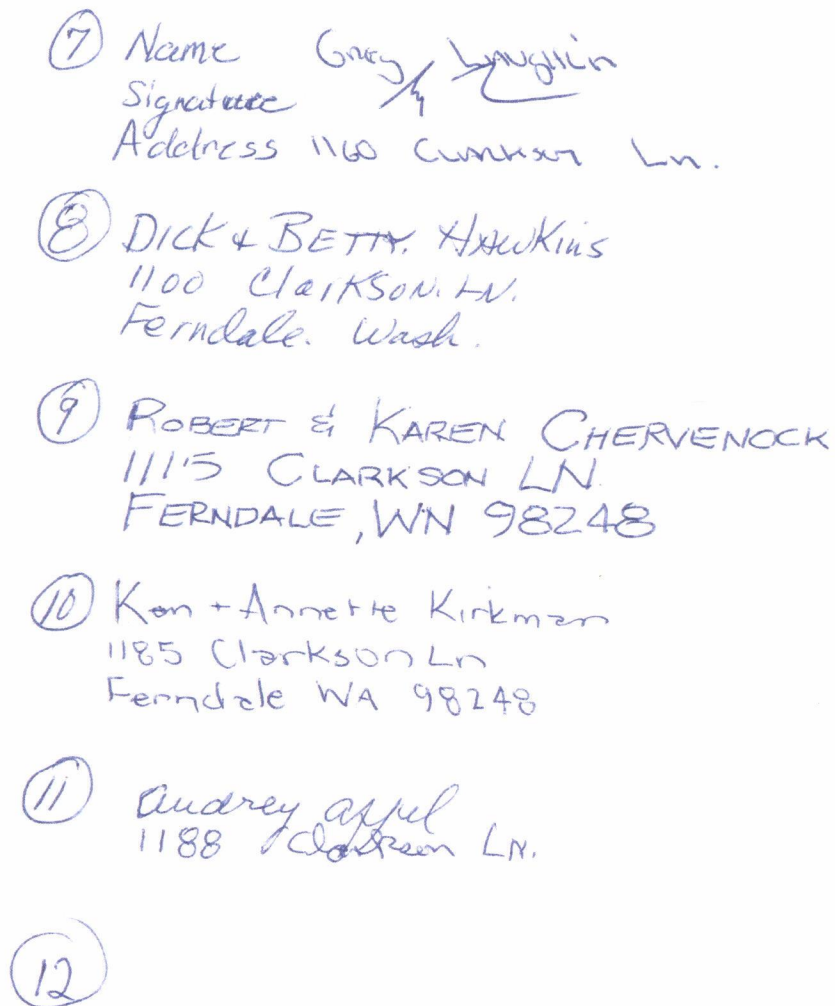 7 Name Greg Laughlin
Signature
Address 1160 Clarkson Ln.
8 DICK & BETTY. HAWKINS
1100 Clarkson. LN.
Ferndale. Wash.
9 ROBERT & KAREN CHERVENOCK
1115 CLARKSON LN.
FERNDALE, WN 98248
10 Ken + Annette Kirkman
1185 Clarkson Ln
Ferndale WA 98248
11 Audrey Appel
1188 Clarkson LN.
12